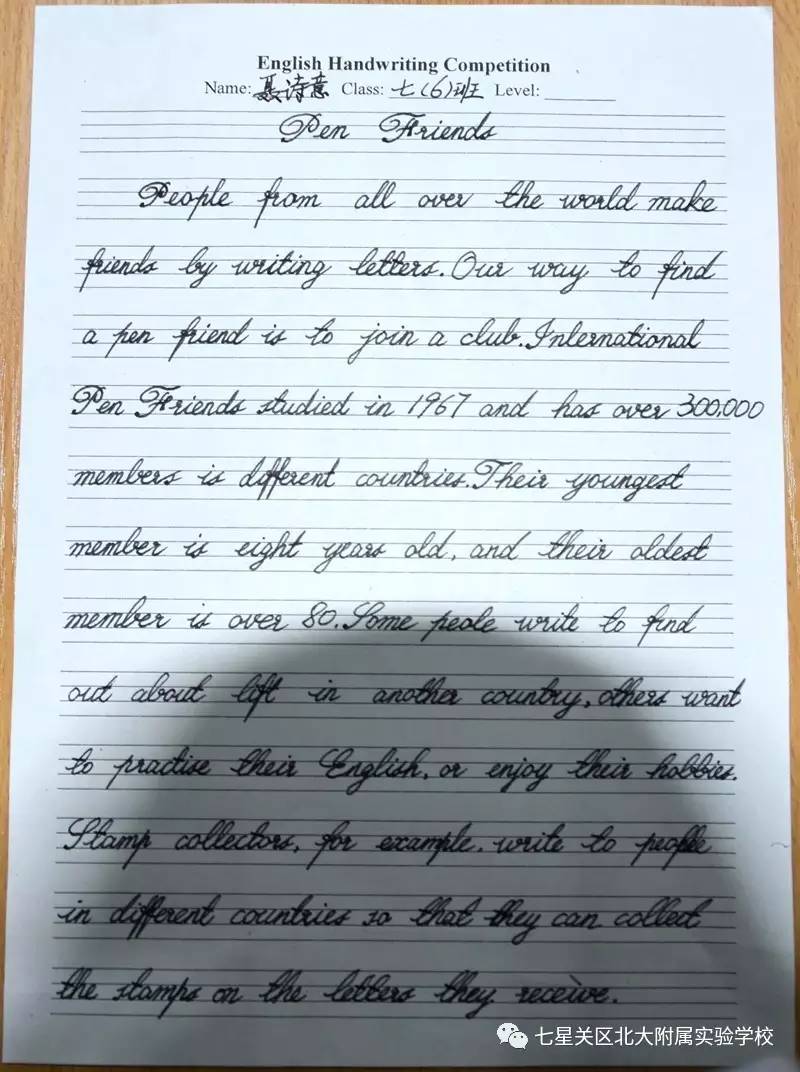 English Handwriting Competition
Name: 聂诗意 Class: 七(6)班 Level:
Pen Friends
People from all over the world make
friends by writing letters. Our way to find
a pen friend is to join a club. International
Pen Friends studied in 1967 and has over 300,000
members is different countries. Their youngest
member is eight years old, and their oldest
member is over 80. Some peole write to find
out about lift in another country, others want
to practise their English, or enjoy their hobbies.
Stamp collectors, for example, write to people
in different countries so that they can collect
the stamps on the letters they receive.
七星关区北大附属实验学校